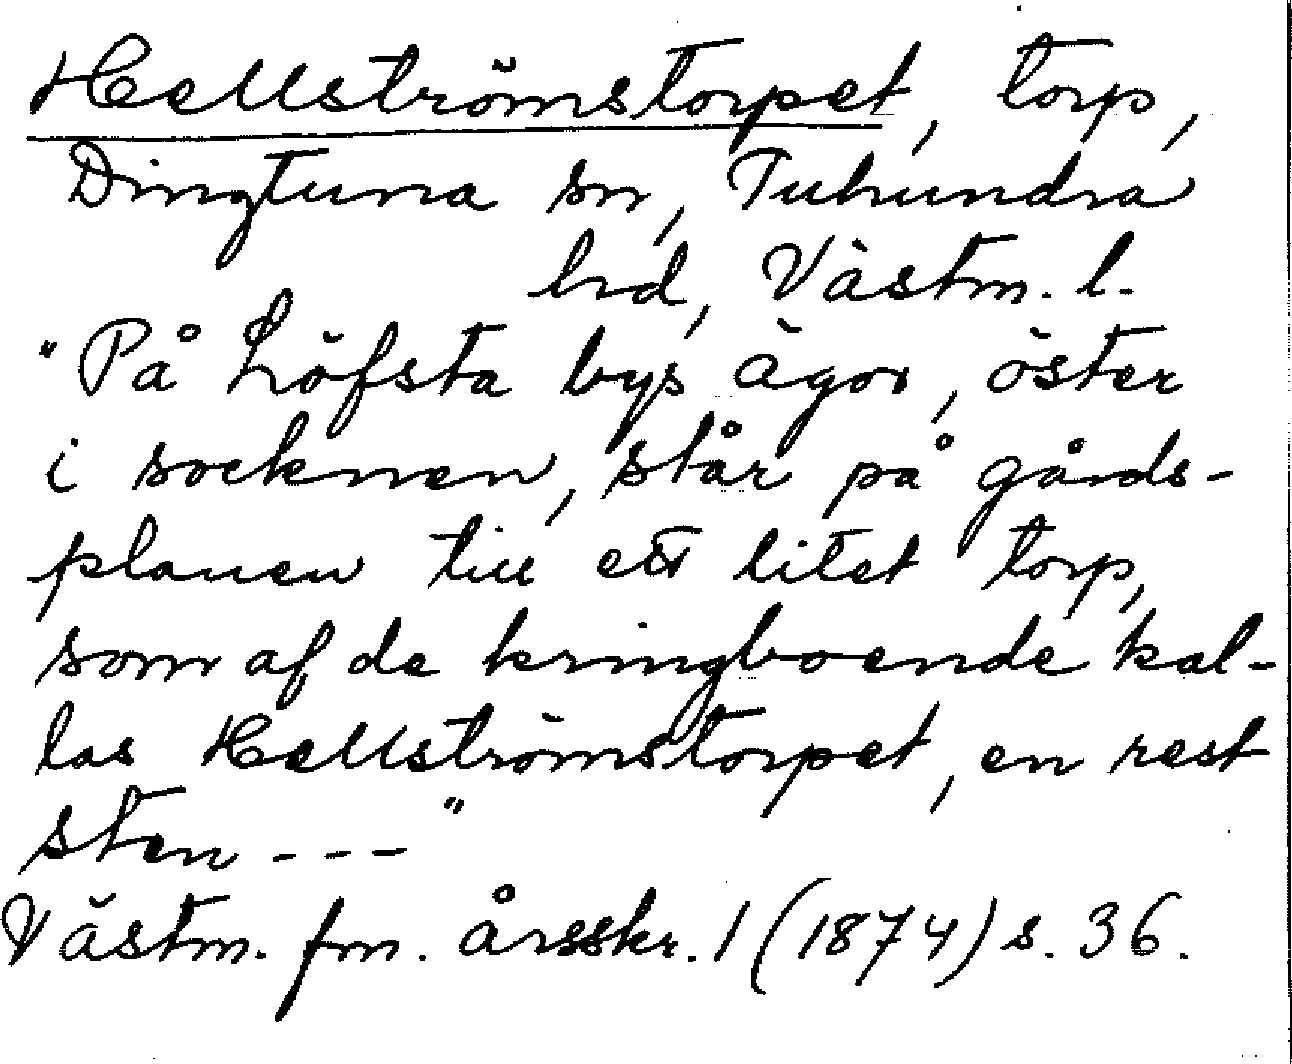 Hellströmstorpet, torp,
Dingtuna sn, Tuhundra
hd, Västm. l.
"På Löfsta bys ägor, öster
i socknen, står på gårds-
planen till ett litet torp,
som af de kringboende kal-
las Hellströmstorpet, en rest
sten - - - "
Västm. fm. årsskr. 1 (1874) s. 36.